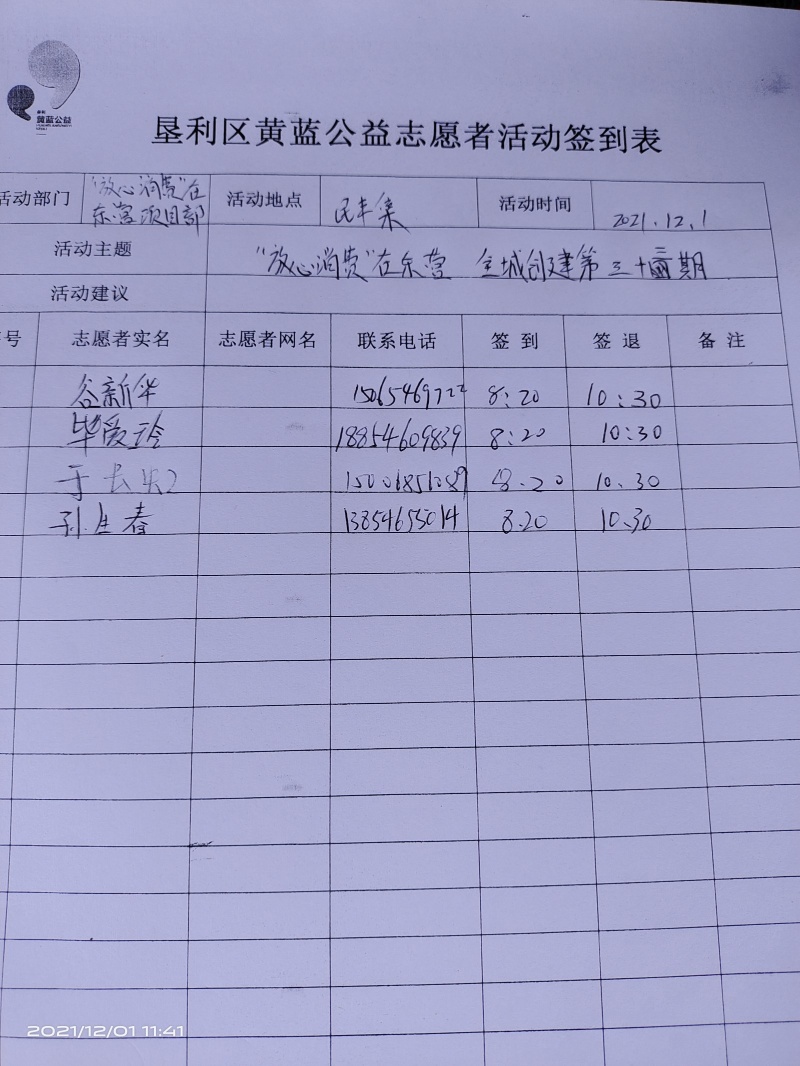 黄蓝公益
垦利区黄蓝公益志愿者活动签到表
活动部门 "放心消费"在东营项目部 活动地点 民丰集 活动时间 2021.12.1
活动主题 "放心消费"在东营 全城创建第三十期
活动建议
号 志愿者实名 志愿者网名 联系电话 签到 签退 备注
谷新华 15065469722 8:20 10:30
毕爱玲 18854609839 8:20 10:30
于长 8.20 10.30
孙生春 13854655014 8.20 10.30
2021/12/01 11:41